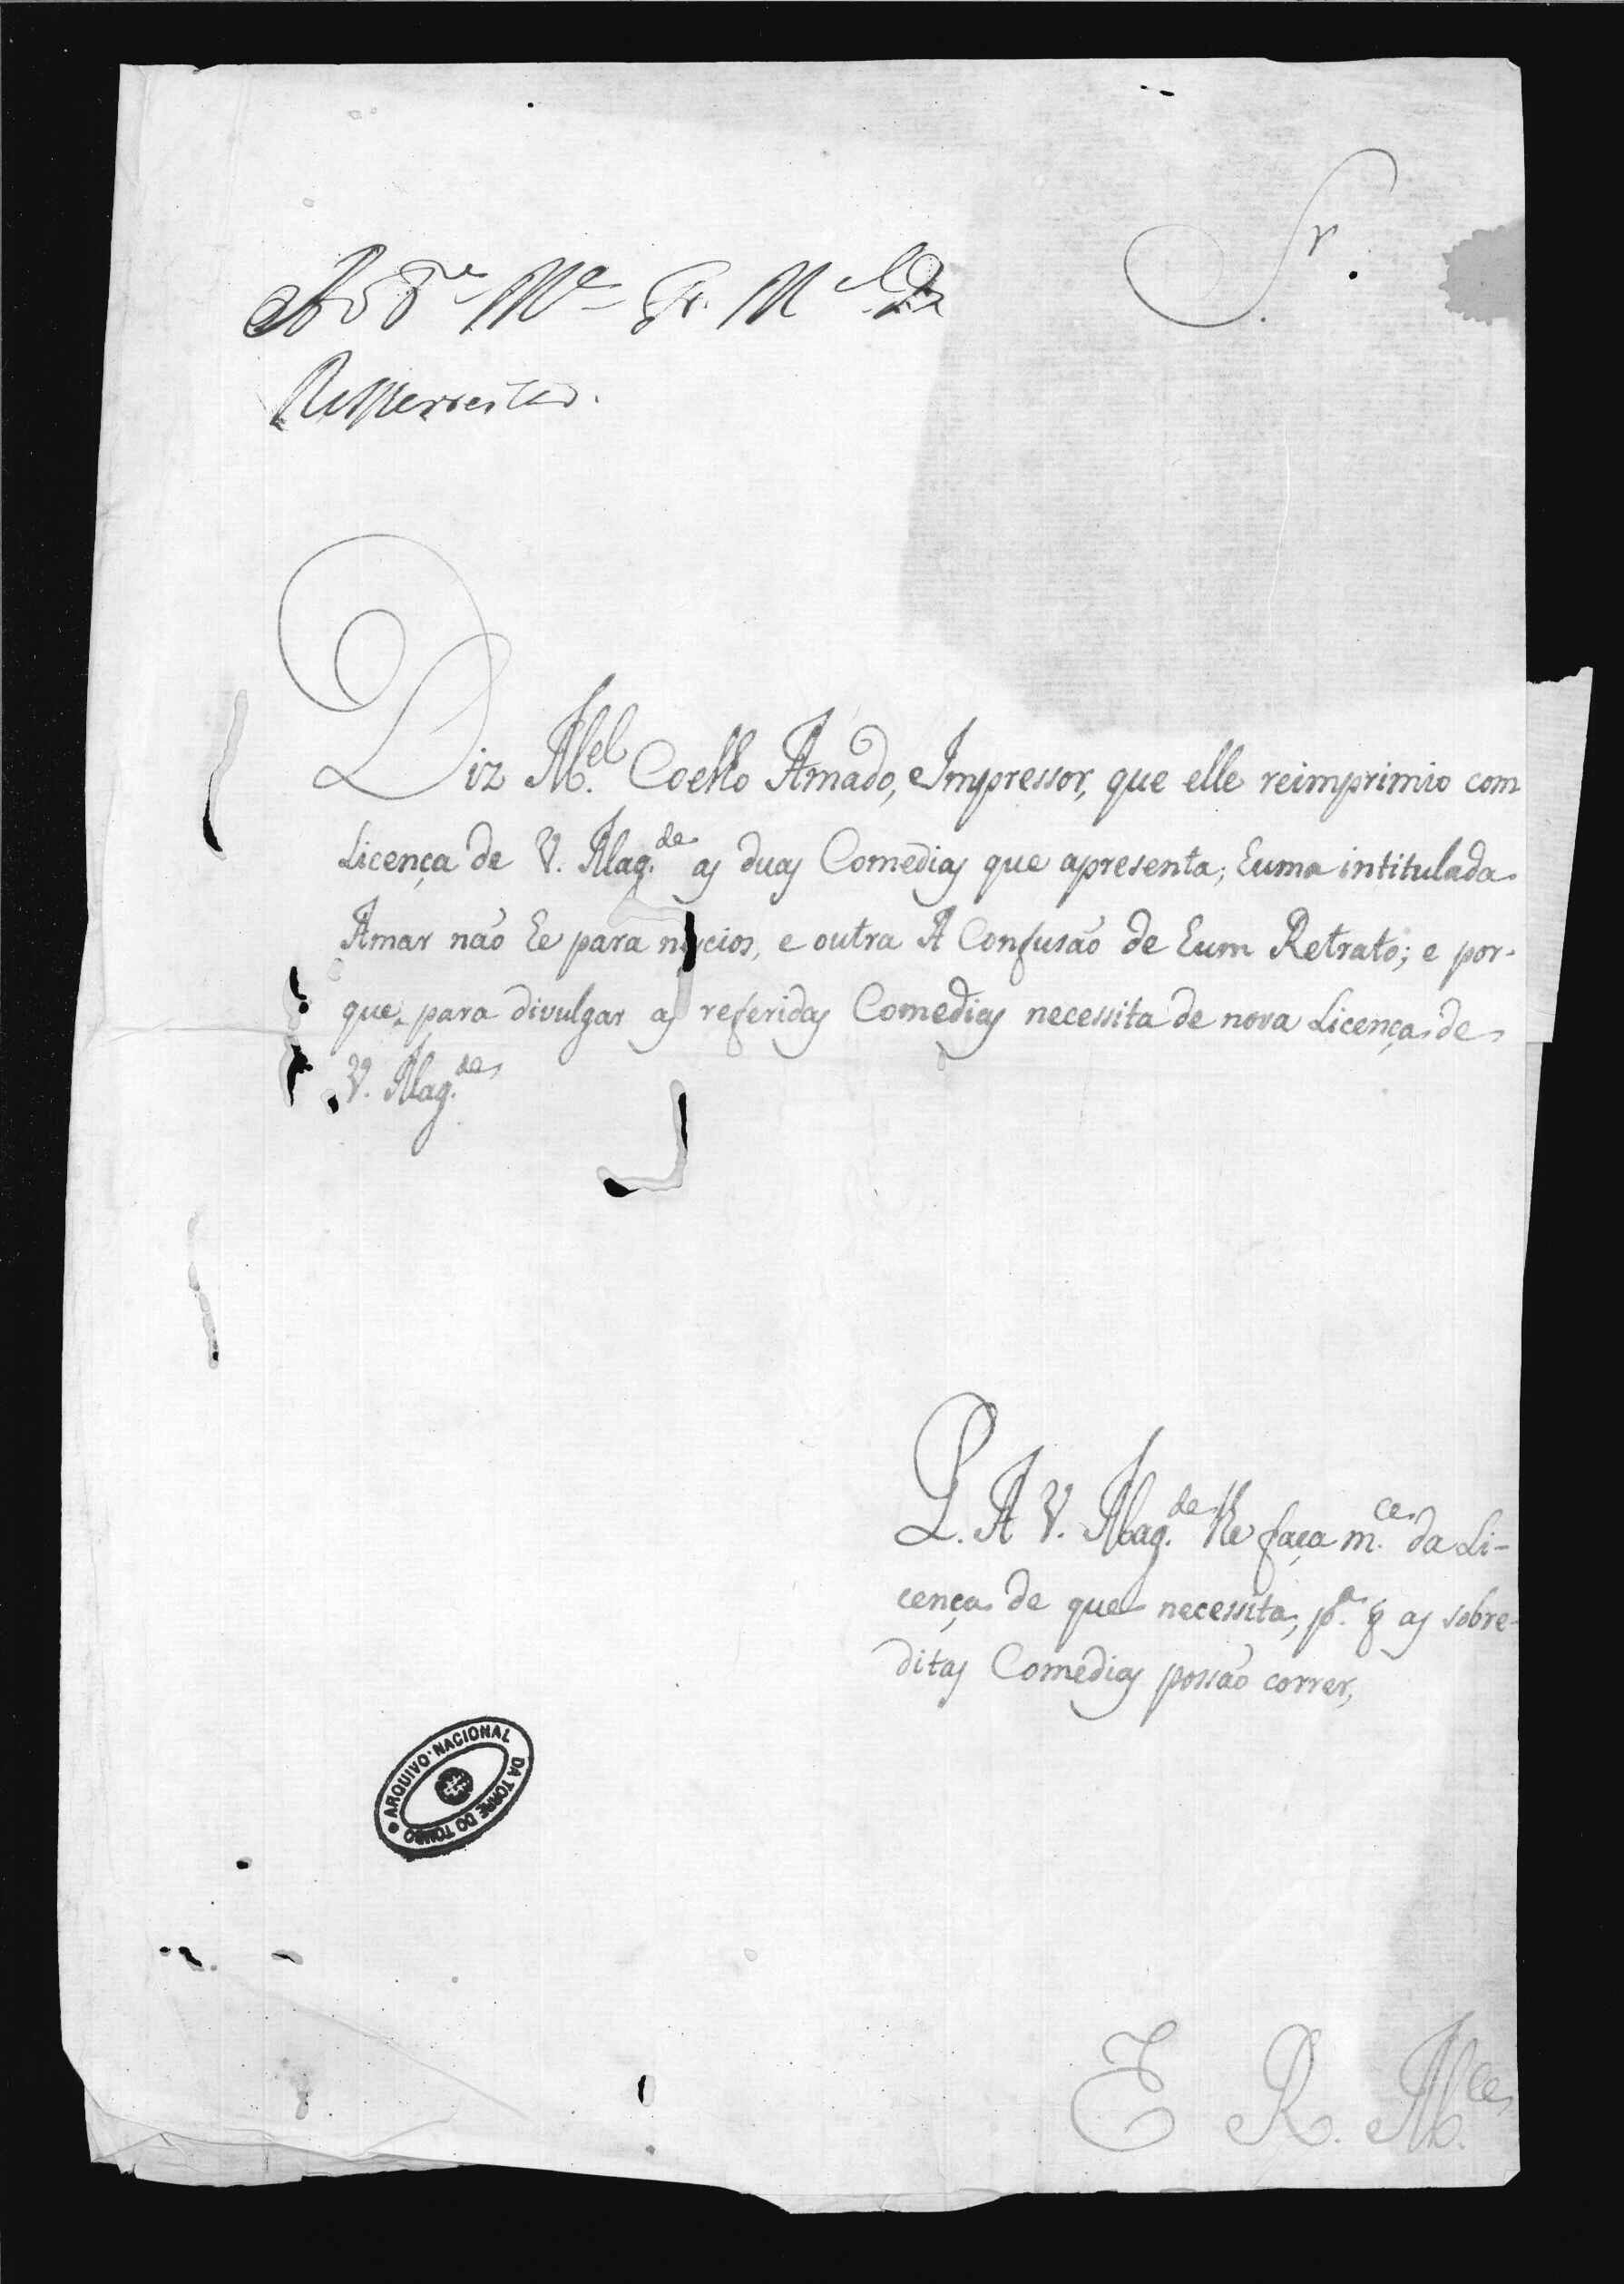 Sr.
Diz M.el Coelho Amado, Impressor, que elle reimprimio com
Licença de V. Mag.de as duas Comedias que apresenta; huma intitulada
Amar não he para necios, e outra A Confusão de hum Retrato; e por-
que para divulgar as referidas Comedias necessita de nova Licença de
V. Mag.de
P. A V. Mag.de lhe faça m.ce da Li-
cença de que necessita, p.a q as sobre-
ditas Comedias possão correr,
ARQUIVO NACIONAL DA TORRE DO TOMBO
E R. M.ce